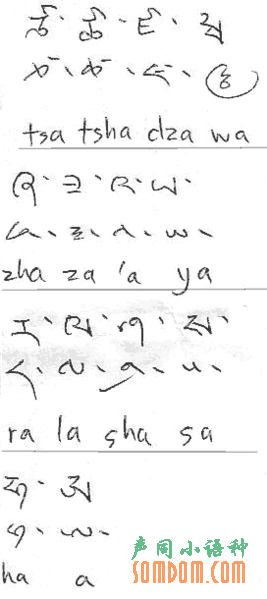 ཙ་ ཚ་ ཛ་ ཝ
ཙ་ ཚ་ ཛ་ ཝ
tsa tsha dza wa
ཞ་ ཟ་ འ་ ཡ་
ཞ་ ཟ་ འ་ ཡ་
zha za 'a ya
ར་ ལ་ ཤ་ ས་
ར་ ལ་ ཤ་ ས་
ra la sha sa
ཧ་ ཨ
ཧ་ ཨ་
ha a
声同小语种
SOMDOM.COM